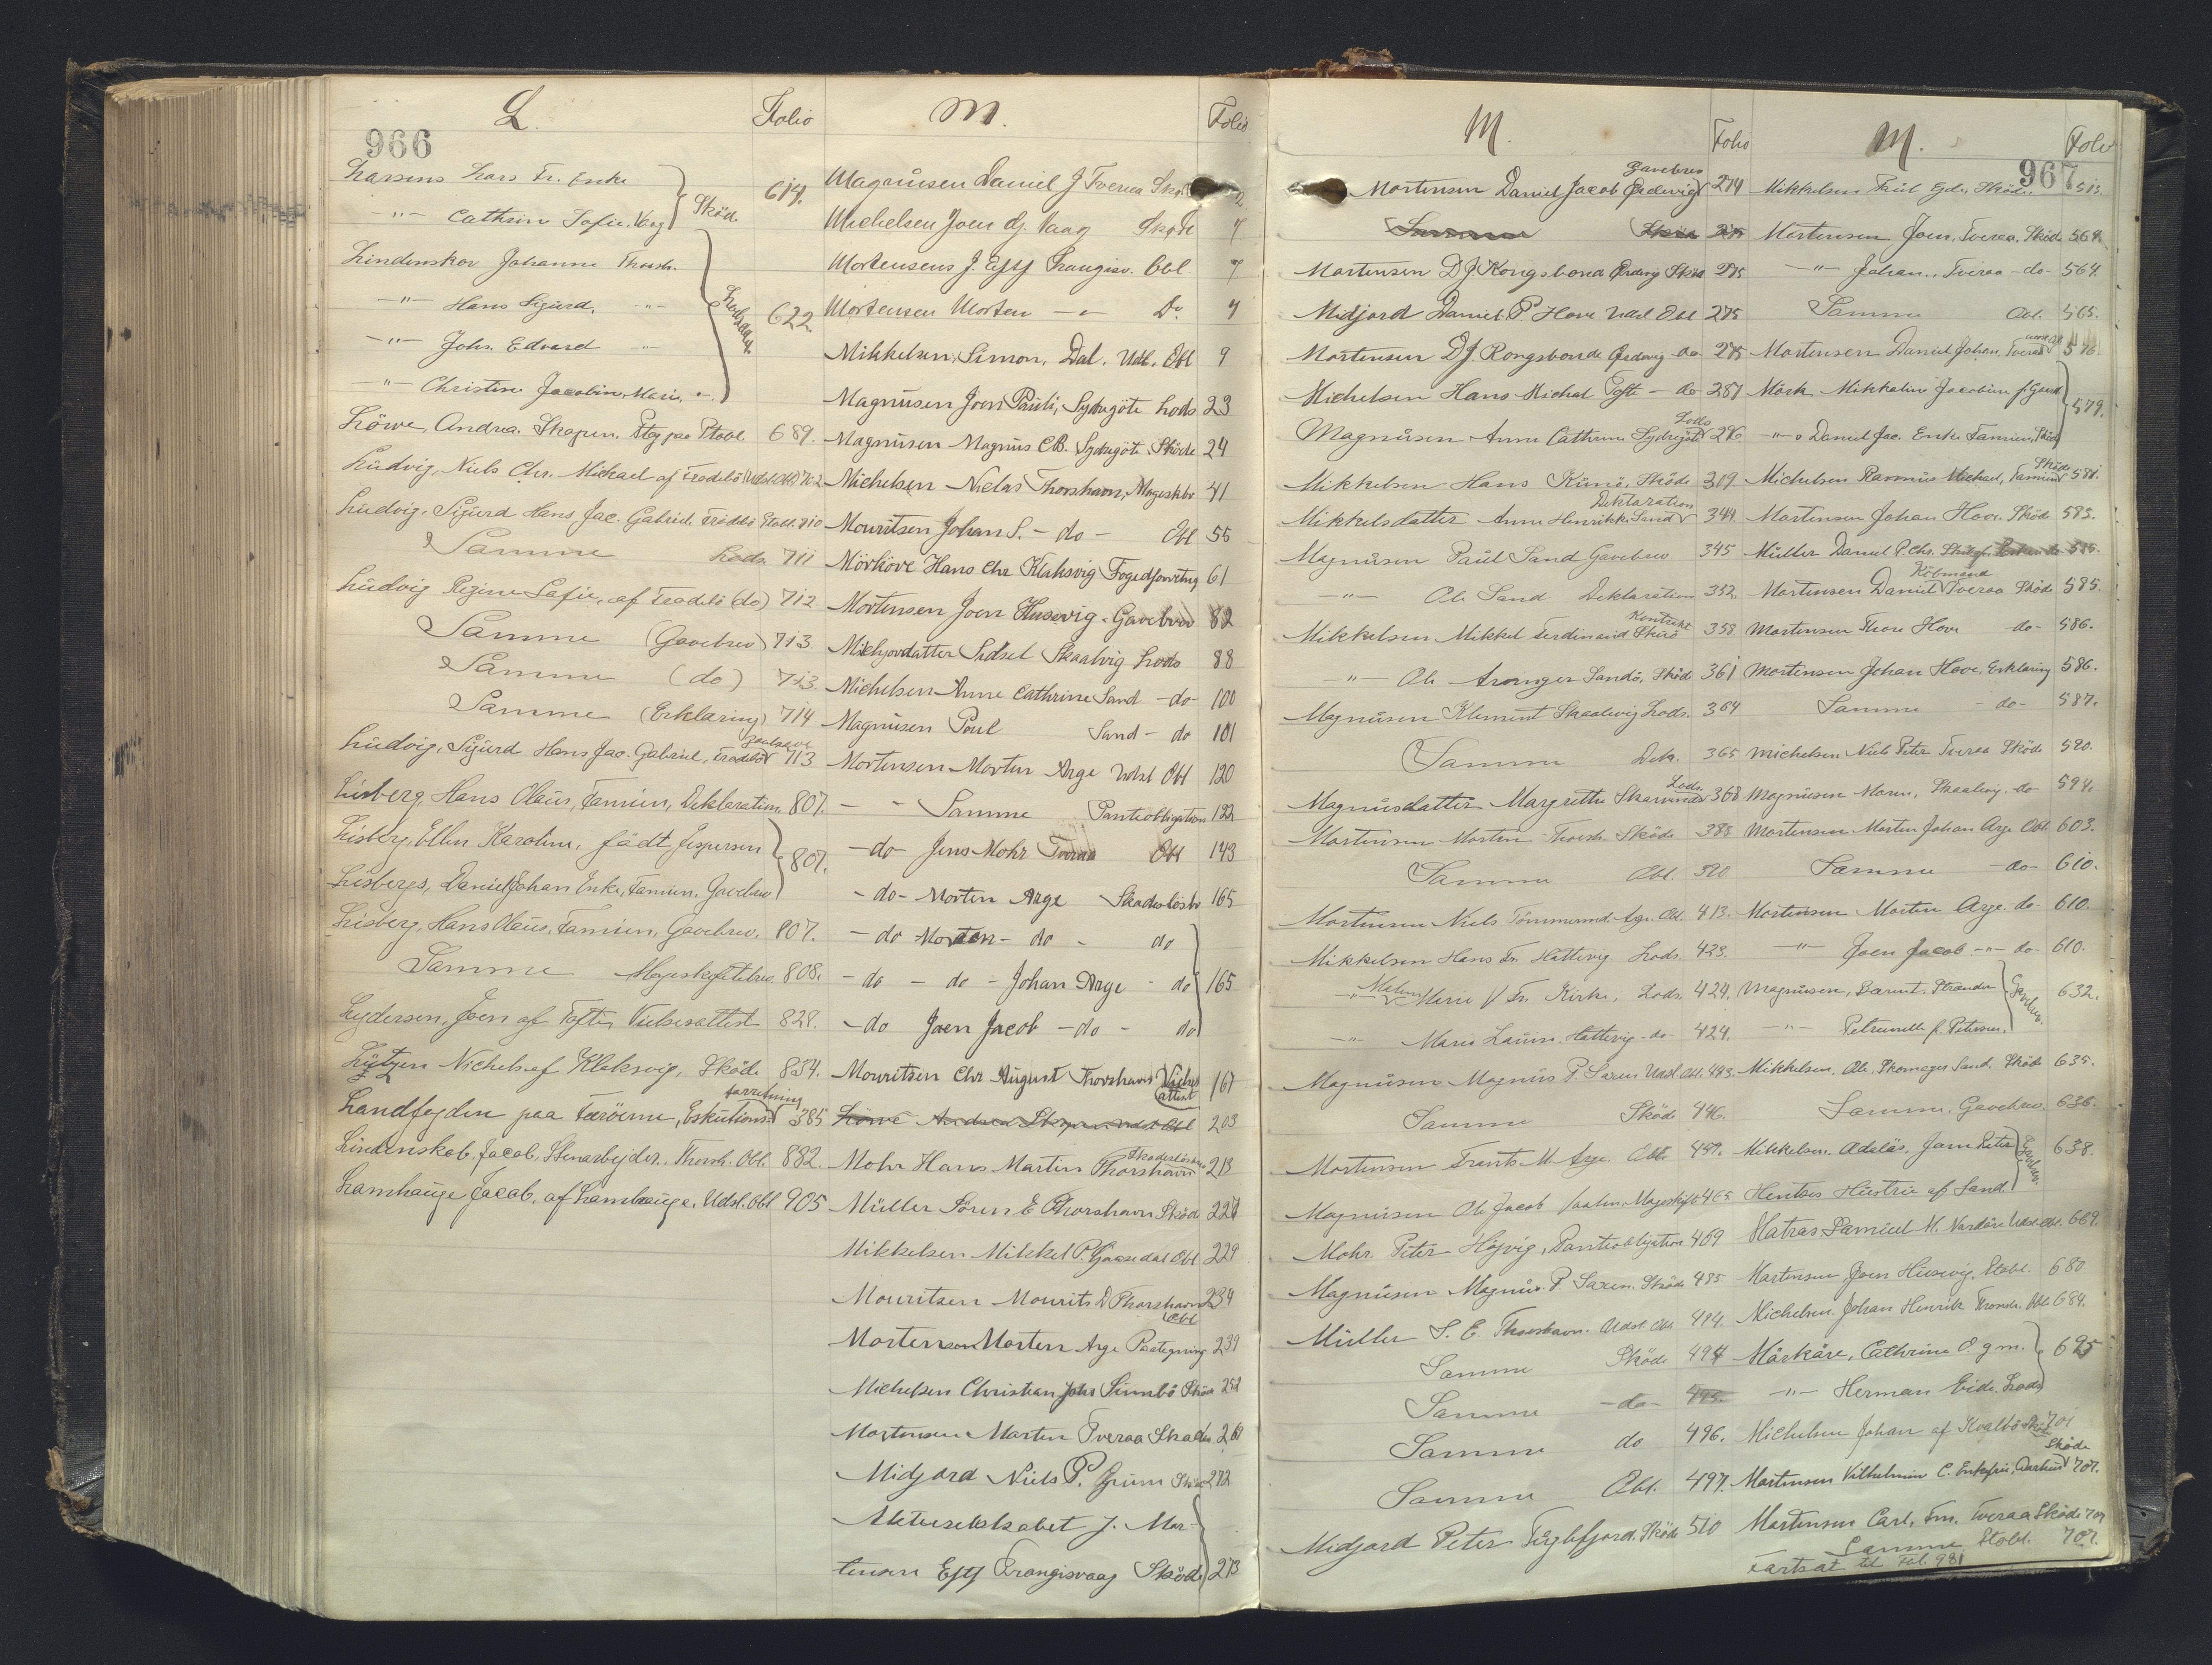 966
L.
Folio
Larsens Lars Fr. Enke
-"- Cathrin Sofie, Vaag Sköd. 614.
Lindenskov Johanne Thorsh.
-"- Hans Sigurd, -"-
-"- Johs. Edvard -"- 622
-"- Christine Jacobine Marie, -"-
Löwe, Andrea. Skapun. Stobl. 689.
Ludvig, Niels Chr. Michael af Trodlö (Udsl. Obl.) 702
Ludvig, Sigurd Hans Jac. Gabriel. Trödlö Stobl. 710
Samme Lods. 711
Ludvig Regine Sofie, af Trodlö (do) 712
Samme (Gavebrev) 713.
Samme (do) 713.
Samme (Erklæring) 714
Ludvig, Sigurd Hans Jac. Gabriel, 713
Lisberg, Hans Olaus, Famien, Deklaration. 807.
Lisberg, Ellen Karoline, födt Jespersen
Lisbergs, Daniel Johan Enke, Famien, Gavebrev 807.
Lisberg, Hans Olaus, Famien, Gavebrev. 807.
Samme Mageskiftebrev 808.
Lydersen, Joen af Tofte, Vielsesattest 828.
Lützen Nichels af Klaksvig, Sköde 834.
Landfogden paa Færöerne, Eskutionsforretning 385
Lindenskob. Jacob, Stenarbejder, Thorsh. Obl. 882.
Lamhauge Jacob, af Lamhauge, Udsl. Obl 905
M.
Folio
Magnusen Daniel J Tveraa
Michelsen Joen dj. Vaag Sköde 4
Mortensens J. Eftf Trangisv. Obl. 7
Mortensen Morten -"- Do 4
Mikkelsen, Simon, Dal. Udl. Obl 9
Magnusen Joen Pauli, Sydregöte Lods 23
Magnusen Magnus CB. Sydregöte Sköde 24
Michelsen Niclas Thorshavn, Mageskbr 41
Mouritsen Johan S. - do - Obl 55
Mörköre Hans Chr Klaksvig Fogedforretng 61
Mortensen Joen Husevig. Gavebrev 82
Michjorsdatter Sidsel Skaalvig Lods 88
Michelsen Anne Cathrine Sand - do - 100
Magnusen Poul Sand - do 101
Mortensen Morten Arge Udsl Obl 120
- " - Samme Panteobligation 122
- do - Jens Mohr Tveraa Obl 143
- do - Morten Arge Skadeslösbr 165
- do Morten - do - do
- do - do - Johan Arge - do 165
- do Joen Jacob - do - do
Mouritsen Chr August Thorshavn Vielses attest 167
Löwe Andrea Skapun Udsl Obl 203
Mohr Hans Martin Thorshavn Skadeslösbr 213
Müller Sören E Thorshavn Sköd 227
Mikkelsen Mikkel P. Gaasedal Obl 229
Mouritsen Mourits D Thorshavn Obl 234
Mortensen Morten Arge Paategning 239
Michelsen Christian Johs Sumbö Sköde 258
Mortensen Morten Tveraa 261
Midjord Niels P. 272
Aktieselskabet J. Mor-
tensen Eftf Trangisvaag Sköde 273
M.
Folio
Mortensen Daniel Jacob Ördevig Gavebrev 274
Samme Sköde 275
Mortensen DJ Kongsbonde Ördevig Sköde 275
Midjord Daniel P. Hove Udsl Obl 275
Mortensen DJ. Kongsbonde Ördevig do 275
Michelsen Hans Michal Tofte - do 287
Magnusen Anne Cathrine Sydregöte Lods 296
Mikkelsen Hans Kunö, Sköde 319
Mikkelsdatter Anne Henrikke Sand Deklaration 349
Magnusen Paul Sand Gavebrev 345
-"- Ole Sand Deklaration 352.
Mikkelsen Mikkel Ferdinand Skuö Kontrakt 358
-"- Ole Sandö, Sköde 361
Magnusen Klement Skaalevig Lods. 364
Samme Dek. 365
Magnusdatter Margrethe Lods 368
Mortensen Morten Thorsh Sköde 388
Samme Obl. 390
Mortensen Niels Tömmermd. Arge. Obl. 413.
Mikkelsen Hans Fr. Hattervig Lods. 423.
-"- Kirke, Lods. 424.
-"- Hattervig do 424.
Magnusen Magnus P. Saxen Udsl Obl. 493.
Samme Sköde 446.
Mortensen Frants M. Arge. Obl. 459.
Magnusen Ole Jacob Mageskift 465
Mohr. Peter Höjvig, Panteobligation 469
Magnusen Magnus. P Saxen. Sköde 485
Müller S. E. Thorshavn. Udsl Obl. 494.
Samme Sköde 494
Samme - do - 495.
Samme do 496.
Samme Obl. 497.
Midjord Peter Sköde 510
M.
967
Folio
Mikkelsen Sköde 513.
Mortensen Joen. Tveraa. Sköde 564.
-"- Johan., Tveraa - do - 564.
Samme Obl. 565.
Mortensen Daniel Johan, Tveraa 576.
Mörk Mikkeline Jacobine
-"- Daniel Jac. Enke Famien, Sköde 579.
Michelsen Rasmus Michael, Famien Sköde 581.
Mortensen Johan Hove. Sköde 583.
Müller Daniel P. Chr. 585.
Mortensen Daniel Købmand Tveraa Sköde 585.
Mortensen Thore Hove do - 586.
Mortensen Johan Hove, Erklæring 586.
Samme - do - 587.
Michelsen Niels Peter Tveraa Sköde 590.
Magnusen Maren, Skaalevig. do 594.
Mortensen Morten Johan Arge Obl. 603.
Samme - do - 610.
Mortensen Morten Arge - do - 610.
-"- Joen Jacob -"- do - 610.
Magnusen, Berent. Strender Gavebrev. 632.
-"- Petrunelle f. Petersen.
Mikkelsen, Ole, Skomager Sand. Sköde 635.
Samme. Gavebrev. 636.
Mikkelsen. Adelus, Joen Peter 638.
Hentzes Hustru af Sand
Matras Samuel M. Nordöre Udsl. Obl. 669.
Mortensen, Joen Husevig. Stobl. 680
Michelsen Johan Henrik Obl 684.
Mörköre, Cathrine O. gm. 695
-"- Herman Eide. Lods
Michelsen Johan af Kvalbö Sköde 701
Mortensen Vilhelmine C. Enkefru, Aarhus Sköde 707.
Mortensen Carl, Fm. Tveraa Sköde 707
Samme Stobl. 707.
Fortsat til Fol. 981